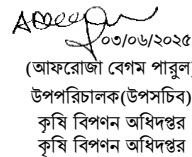 ০৩/০৬/২০২৫
(আফরোজা বেগম পারুল)
উপপরিচালক(উপসচিব)
কৃষি বিপণন অধিদপ্তর
কৃষি বিপণন অধিদপ্তর